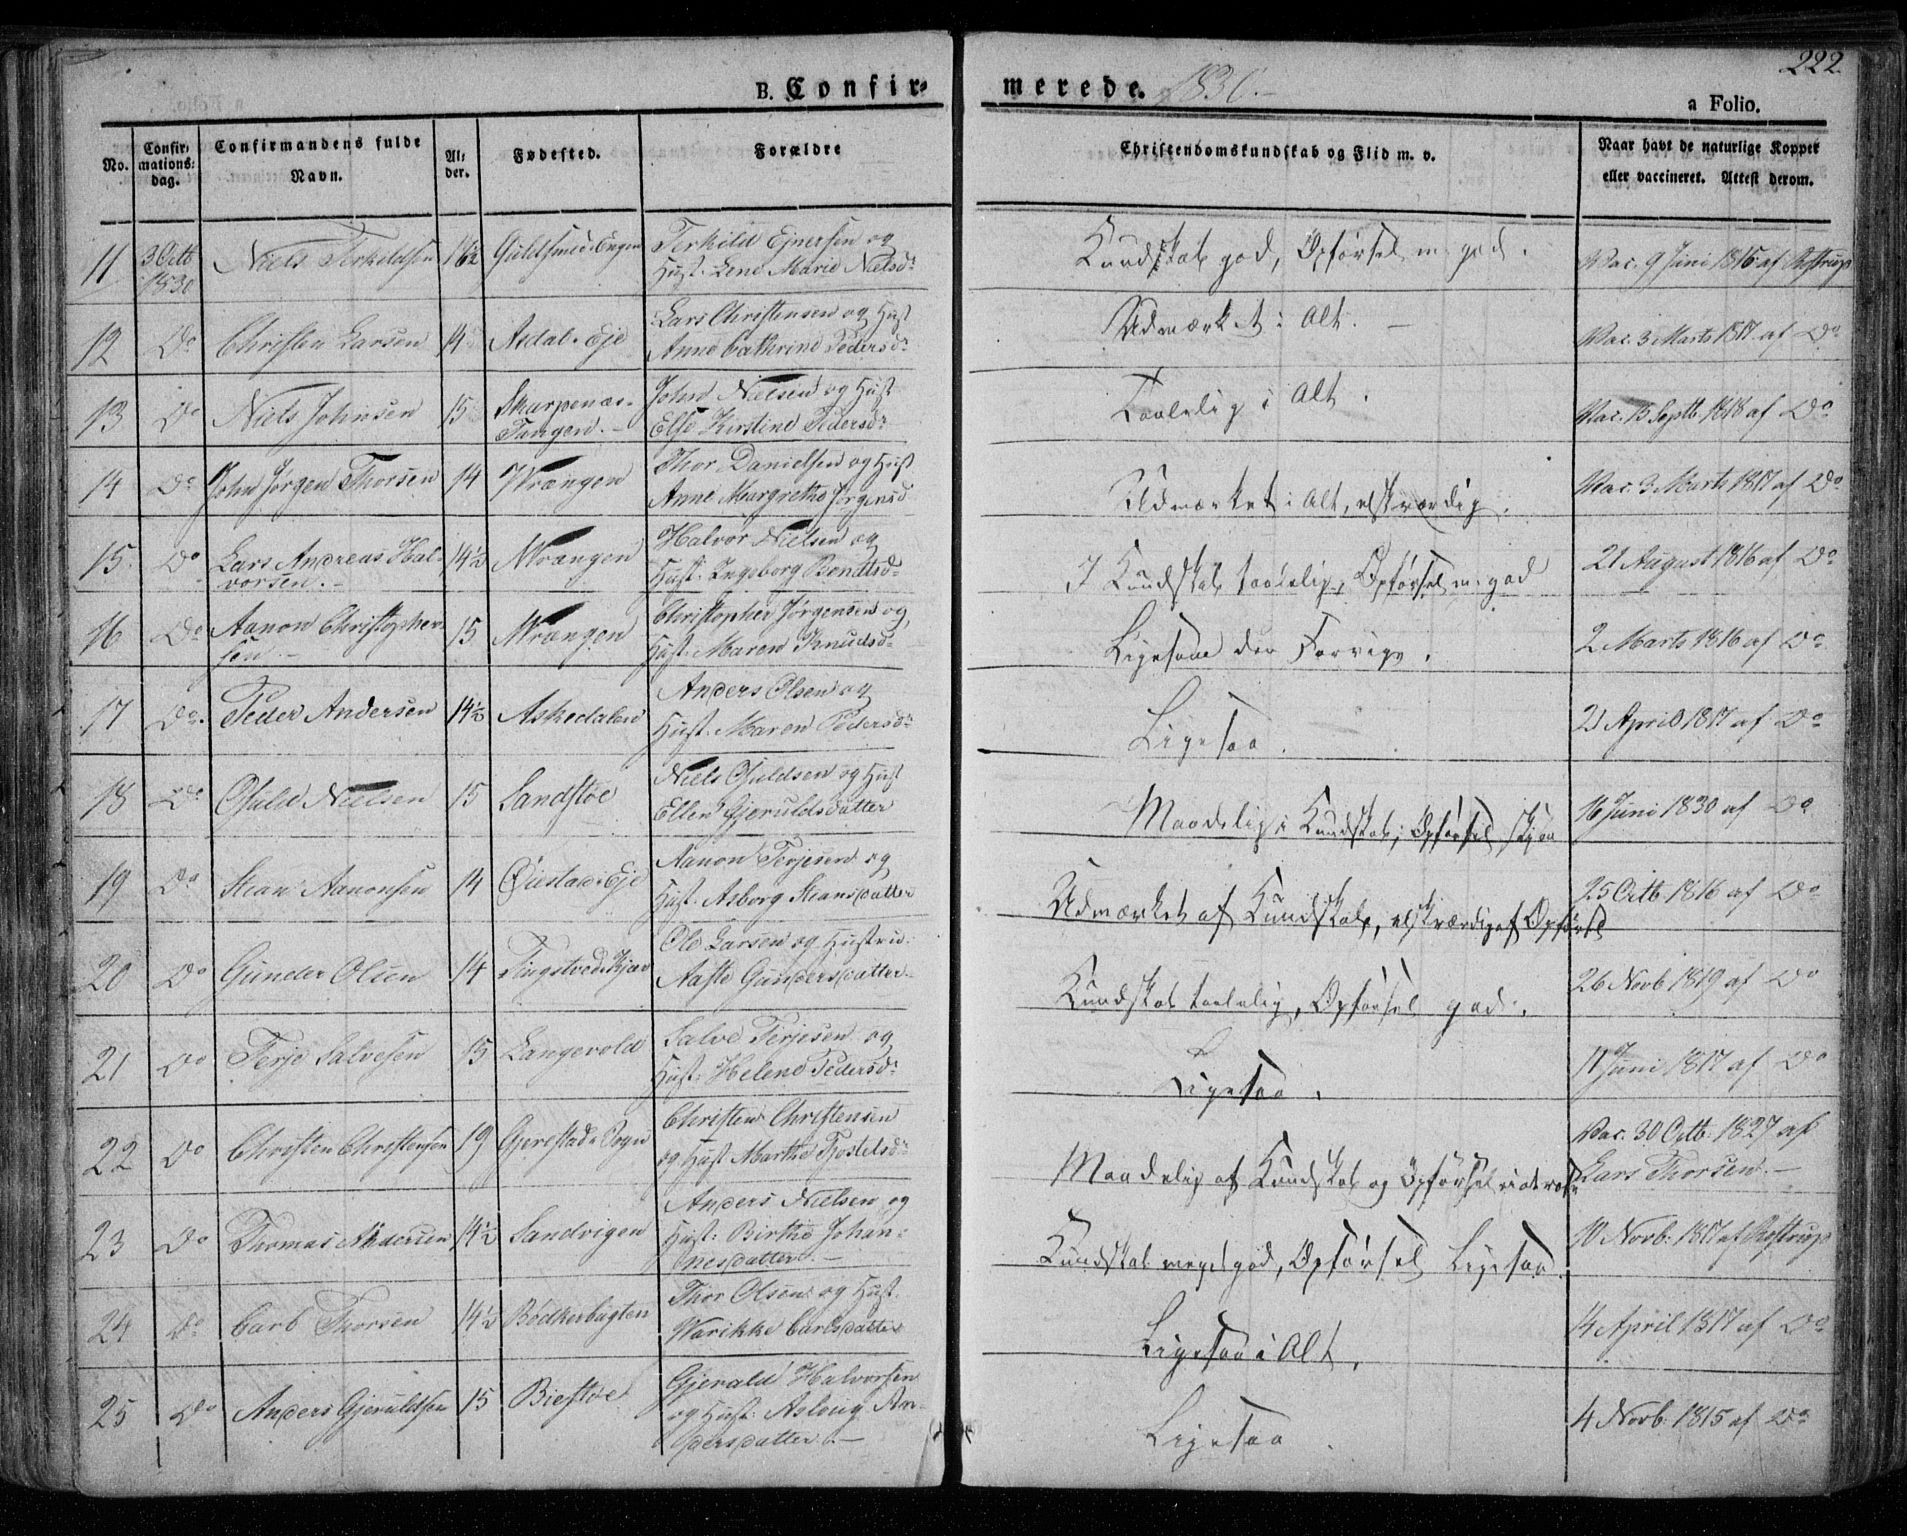 222
B. Confirmerede. 1830.
a Folio.
No. Confirmationsdag. Confirmandens fulde Navn. Alder. Fødested. Forældre Christendomskundskab og Flid m. v. Naar havt de naturlige Kopper eller vaccineret. Attest derom.
11 3 Octb 1830 Niels Terkildsen 16½ Guldsmedengen Terkild Ejnersen og Hust. Lene Marie Nielsd: Kundskab god, Opførsel m. god. Vac. 9 Juni 1815 af Rostrup
12 Do Christen Larsen 14 Asdal Eje Lars Christensen og Hust Anne Cathrine Pedersd: Udmærket i Alt. Vac. 3 Marts 1817 af Do
13 Do Niels Johnsen 15 Skarpenæs-Tangen John Nielsen og Hust Else Kirstine Pedersd: Taalelig i Alt. Vac. 15 Septb 1818 af Do
14 Do John Jørgen Thorsen 14 Wrængen Thor Danielsen og Hust Anne Margrethe Jørgensd Udmærket i Alt, elskværdig. Vac. 3 Marts 1817 af Do
15. Do Lars Andreas Halvorsen. 14½ Wrængen Halvor Nielsen og Hust. Ingeborg Bendtsd: I Kundskab taalelig, Opførsel m. god 21 August 1816 af Do
16 Do Aanon Christophersen. 15 Wrængen Christopher Jørgensen og Hust. Maren Knudsd: Ligesaa den Forrige. 2 Marts 1816 af Do
17 Do. Peder Andersen 14½ Askedalen Anders Olsen og Hust. Maren Pedersd: Ligesaa. 21 April 1817 af Do
18 Do Osuld Nielsen 15 Sandstøe Niels Osuldsen og Hust Ellen Gjeruldsdatter Maadelig i Kundskab, Opførsel skjøn 16 Juni 1830 af Do
19 Do Stean Aanonsen 14 Øiestad Eje Aanon Terjesen og Hust. Asborg Steansdatter Udmærket af Kundskab, elskværdig af Opførsel 25 Octb 1816 af Do
20 Do Gunder Olsen 14 Tingstvedkjær Ole Larsen og Hustru Aaste Gundersdatter Kundskab taalelig, Opførsel god. 26 Novb 1819 af Do
21 Do Terje Salvesen 15 Langevold Salve Terjesen og Hust: Helene Pedersd: Ligesaa. 11 Juni 1817 af Do
22 Do Christen Christensen 19 Gjerestads Sogn Christen Christensen og Hust Marthe Tostelsd: Maadelig af Kundskab og Opførsel Vac. 30 Octb. 1827 af Lars Thorsen.
23 Do Thomas Andersen 14½ Sandvigen Anders Nielsen og Hust: Birthe Johannesdatter. Kundskab meget god, Opførsel Ligesaa. 10 Novb. 1817 af Rostrup
24 Do Carl Thorsen 14½ Bødkerbugten Thor Olsen og Hust. Warikke Carlsdatter Ligesaa i Alt. 14 April 1817 af Do
25 Do Anders Gjeruldsen 15 Biestøe Gjerald Halvorsen og Hust. Asloug Andersdatter. Ligesaa. 4 Novb. 1815 af Do